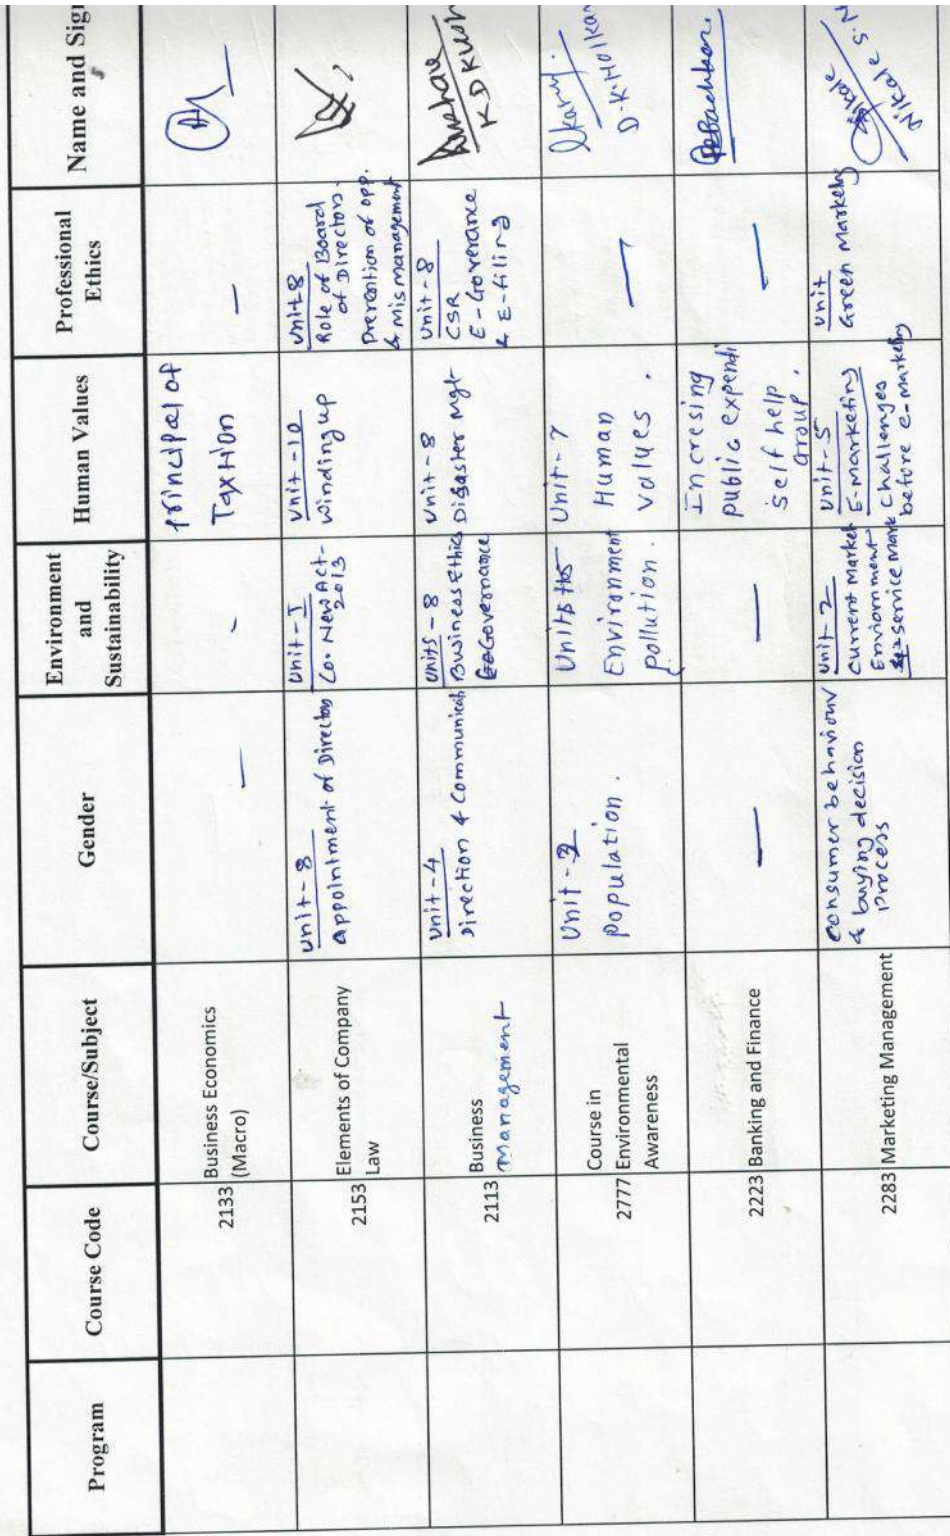 Program
Course Code
Course/Subject
Gender
Environment
and
Sustainability
Human Values
Professional
Ethics
Name and Sign
2133
Business Economics
(Macro)
—
-
Principal of
Taxtion
—
2153
Elements of Company
Law
Unit-8
Appointment of Director
Unit-I
Co. New Act-
2013
Unit-10
Winding up
Unit 8
Role of Board
of Directors.
Prevention of opp.
& mismanagement
2113
Business
Management
Unit-4
Direction & Communicati
Units-8
Business Ethics
Governance
Unit-8
Disaster Mgt
Unit-8
CSR
E-Goverance
& E-filing
K D Kush
2777
Course in
Environmental
Awareness
Unit-3
population.
Environment
pollution.
Unit-7
Human
values.
—
D.K. Holkar
2223
Banking and Finance
—
—
Incresing
public expendi
self help
Group.
—
2283
Marketing Management
Consumer behaviour
& buying decision
process
Unit-2
Current Market
Enviornment
service mark
Unit-5
E-Marketing
Challenges
before e-marketing
Unit
Green Marketing
Nikale S.N